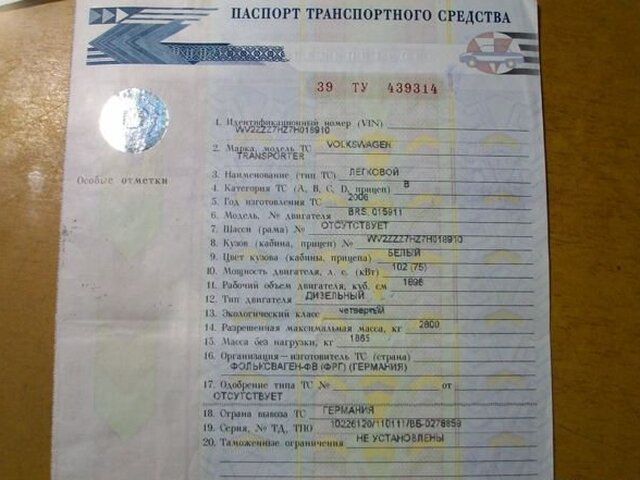 ПАСПОРТ ТРАНСПОРТНОГО СРЕДСТВА
39 ТУ 439314
Особые отметки
1. Идентификационный номер (VIN)
WV2ZZZ7HZ7H018910
2. Марка, модель ТС VOLKSWAGEN
TRANSPORTER
3. Наименование (тип ТС) ЛЕГКОВОЙ
4. Категория ТС (A, B, C, D, прицеп) B
5. Год изготовления ТС 2006
6. Модель, № двигателя BRS, 015911
7. Шасси (рама) № ОТСУТСТВУЕТ
8. Кузов (кабина, прицеп) № WV2ZZZ7HZ7H018910
9. Цвет кузова (кабины, прицепа) БЕЛЫЙ
10. Мощность двигателя, л. с. (кВт) 102 (75)
11. Рабочий объем двигателя, куб. см 1896
12. Тип двигателя ДИЗЕЛЬНЫЙ
13. Экологический класс четвертый
14. Разрешенная максимальная масса, кг 2800
15. Масса без нагрузки, кг 1865
16. Организация-изготовитель ТС (страна)
ФОЛЬКСВАГЕН-ФВ (ФРГ) (ГЕРМАНИЯ)
17. Одобрение типа ТС № от
ОТСУТСТВУЕТ
18. Страна вывоза ТС ГЕРМАНИЯ
19. Серия, № ТД, ТПО 10226120/110111/ВБ-0278859
20. Таможенные ограничения НЕ УСТАНОВЛЕНЫ